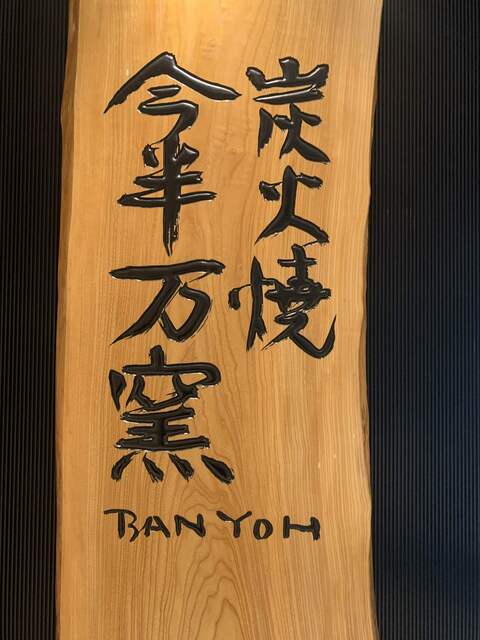 炭火焼
今半万窯
BANYOH